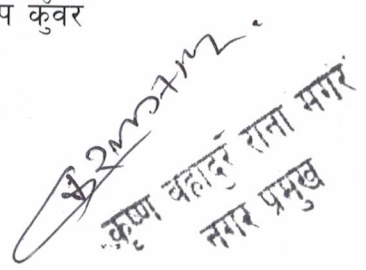 प कुँवर
कृष्ण बहादुर राना मगर
नगर प्रमुख